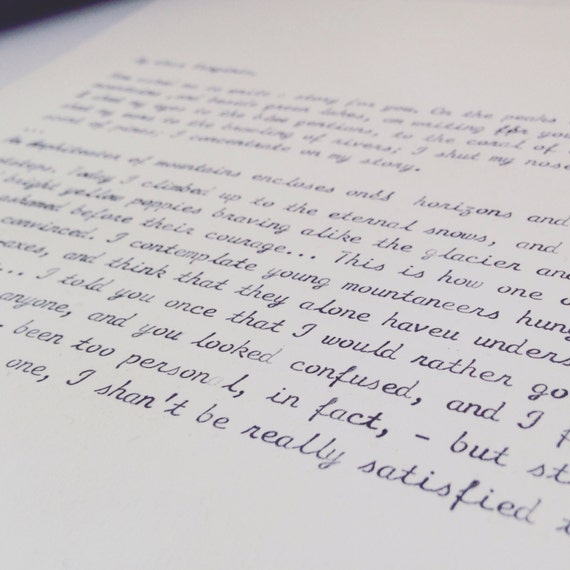 My dear
You asked me to write a story for you. On the peaks
mountains, and beside green lakes, am writing for you
I shut my eyes to the blue gentians, to the coral of
shut my ears to the brawling of rivers; I shut my nose
scent of pines; I concentrate on my story.
...
An Amphitheater of mountains encloses ones horizons and
footsteps. Today I climbed up to the eternal snows, and
bright yellow poppies braving alike the glacier and
ashamed before their courage... This is how one
convinced. I contemplate young mountaneers hung
axes, and think that they alone haveu unders
... I told you once that I would rather go
anyone, and you looked confused, and I
been too personal, in fact, - but st
one, I shan't be really satisfied